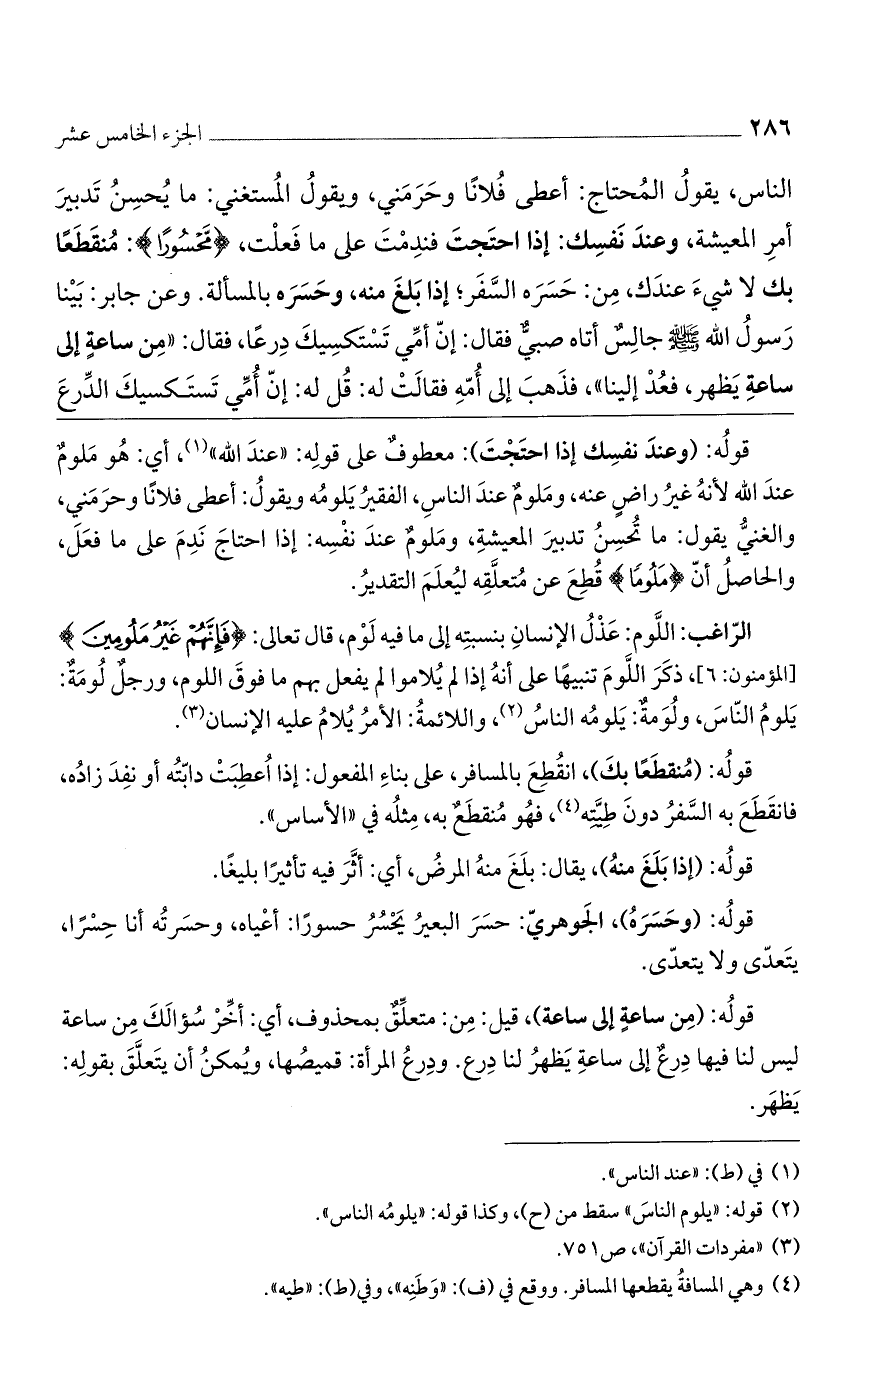 ٢٨٦ ــــــــ الجزء الخامس عشر
الناس، يقولُ المُحتاج: أعطى فُلانًا وحَرَمَني، ويقولُ المُستغني: ما يُحسِنُ تَدبيرَ
أمرِ المعيشة، وعندَ نَفسِك: إذا احتَجتَ فندِمْتَ على ما فَعلْت، ﴿مَّحْسُورًا﴾: مُنقَطَعًا
بك لا شيءَ عندَك، مِن: حَسَرَه السَّفَر؛ إذا بَلغَ منه، وحَسَرَه بالمسألة. وعن جابر: بَيْنا
رَسولُ الله ﷺ جالِسٌ أتاه صبيٌّ فقال: إنّ أمِّي تَسْتكسِيكَ دِرعًا، فقال: «مِن ساعةٍ إلى
ساعةِ يَظهر، فعُدْ إلينا»، فذَهبَ إلى أُمّهِ فقالَتْ له: قُل له: إنّ أُمِّي تَستَكسيكَ الدِّرعَ
قولُه: (وعندَ نفسِك إذا احتَجْتَ): معطوفٌ على قولِه: «عندَ الله»(١)، أي: هُو مَلومٌ
عندَ الله لأنهُ غيرُ راضٍ عنه، ومَلومٌ عندَ الناسِ، الفقيرُ يَلومُه ويقولُ: أعطى فلانًا وحرَمَني،
والغنيُّ يقول: ما تُحسِنُ تدبيرَ المعيشةِ، ومَلومٌ عندَ نفْسِه: إذا احتاجَ نَدِمَ على ما فعَلَ،
والحاصلُ أنّ ﴿مَلُومًا﴾ قُطِعَ عن مُتعلَّقِه ليُعلَمَ التقديرُ.
الرّاغب: اللَّوم: عَذْلُ الإنسانِ بنسبتِه إلى ما فيه لَوْم، قال تعالى: ﴿فَإِنَّهُمْ غَيْرُ مَلُومِينَ﴾
[المؤمنون: ٦]، ذكَرَ اللَّومَ تنبيهًا على أنهُ إذا لم يُلاموا لم يفعل بهم ما فوقَ اللوم، ورجلٌ لُومَةٌ:
يَلومُ النّاسَ، ولُوَمةٌ: يَلومُه الناسُ(٢)، واللائمةُ: الأمرُ يُلامُ عليه الإنسان(٣).
قولُه: (مُنقطَعًا بكَ)، انقُطِعَ بالمسافر، على بناءِ المفعول: إذا أُعطِبَتْ دابّتُه أو نفِدَ زادُه،
فانقَطَعَ به السَّفرُ دونَ طِيَّتِه(٤)، فهُو مُنقطَعٌ به، مِثلُه في «الأساس».
قولُه: (إذا بَلَغَ منهُ)، يقال: بلَغَ منهُ المرضُ، أي: أثَّرَ فيه تأثيرًا بليغًا.
قولُه: (وحَسَرَهُ)، الجَوهريّ: حسَرَ البعيرُ يَحْسُرُ حسورًا: أعْياه، وحسَرتُه أنا حِسْرًا،
يتَعدّى ولا يتعدّى.
قولُه: (مِن ساعةٍ إلى ساعة)، قيل: مِن: متعلِّقٌ بمحذوف، أي: أخِّرْ سُؤالَكَ مِن ساعة
ليس لنا فيها دِرعٌ إلى ساعةِ يَظهرُ لنا دِرع. ودِرعُ المرأة: قميصُها، ويُمكنُ أن يتَعلَّقَ بقولِه:
يَظهَر.
(١) في (ط): «عند الناس».
(٢) قوله: «يلوم الناسَ» سقط من (ح)، وكذا قوله: «يلومُه الناس».
(٣) «مفردات القرآن»، ص٧٥١.
(٤) وهي المسافةُ يقطعها المسافر. ووقع في (ف): «وَطَنِه»، وفي(ط): «طيه».